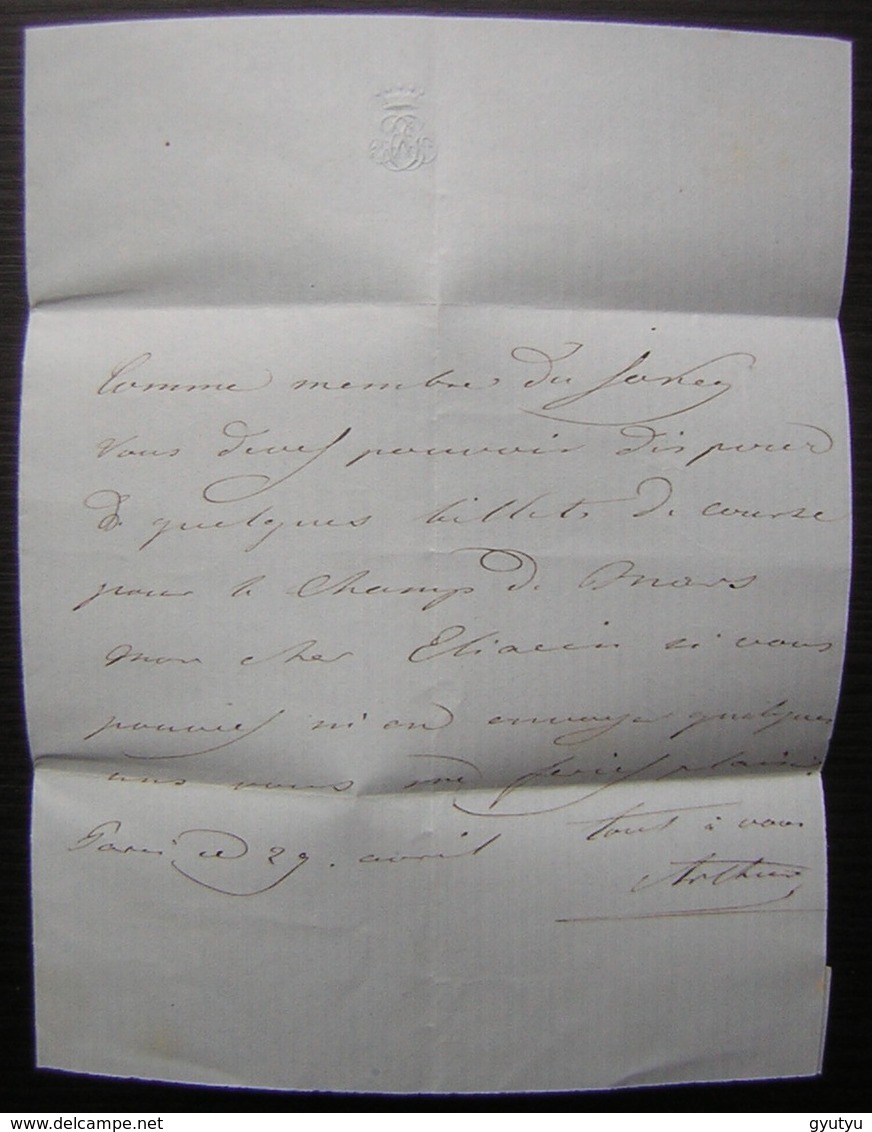 Comme membre du Jokey
vous devez pouvoir disposer
de quelques billets de course
pour le Champ de Mars
mon cher Eliacin si vous
pouviez m'en envoyer quelques
uns vous me feriez plaisir
tout à vous
Paris ce 29. avril
Arthur
www.delcampe.net
gyutyu